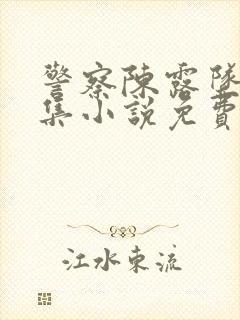 警察陳露隊
集小說免費
江水東流